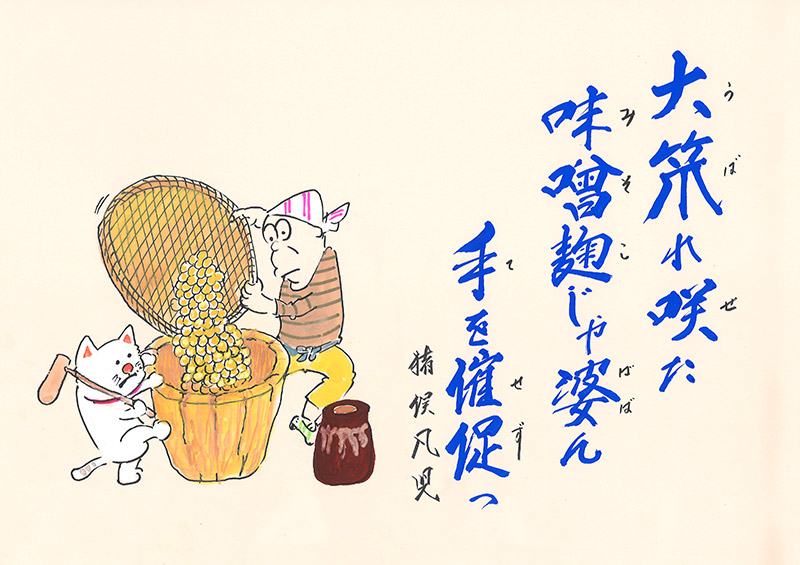 大笊れ咲た
うばせ
味噌麹じゃ婆ん
みそこばば
手を催促っ
てせず
猪俣凡児